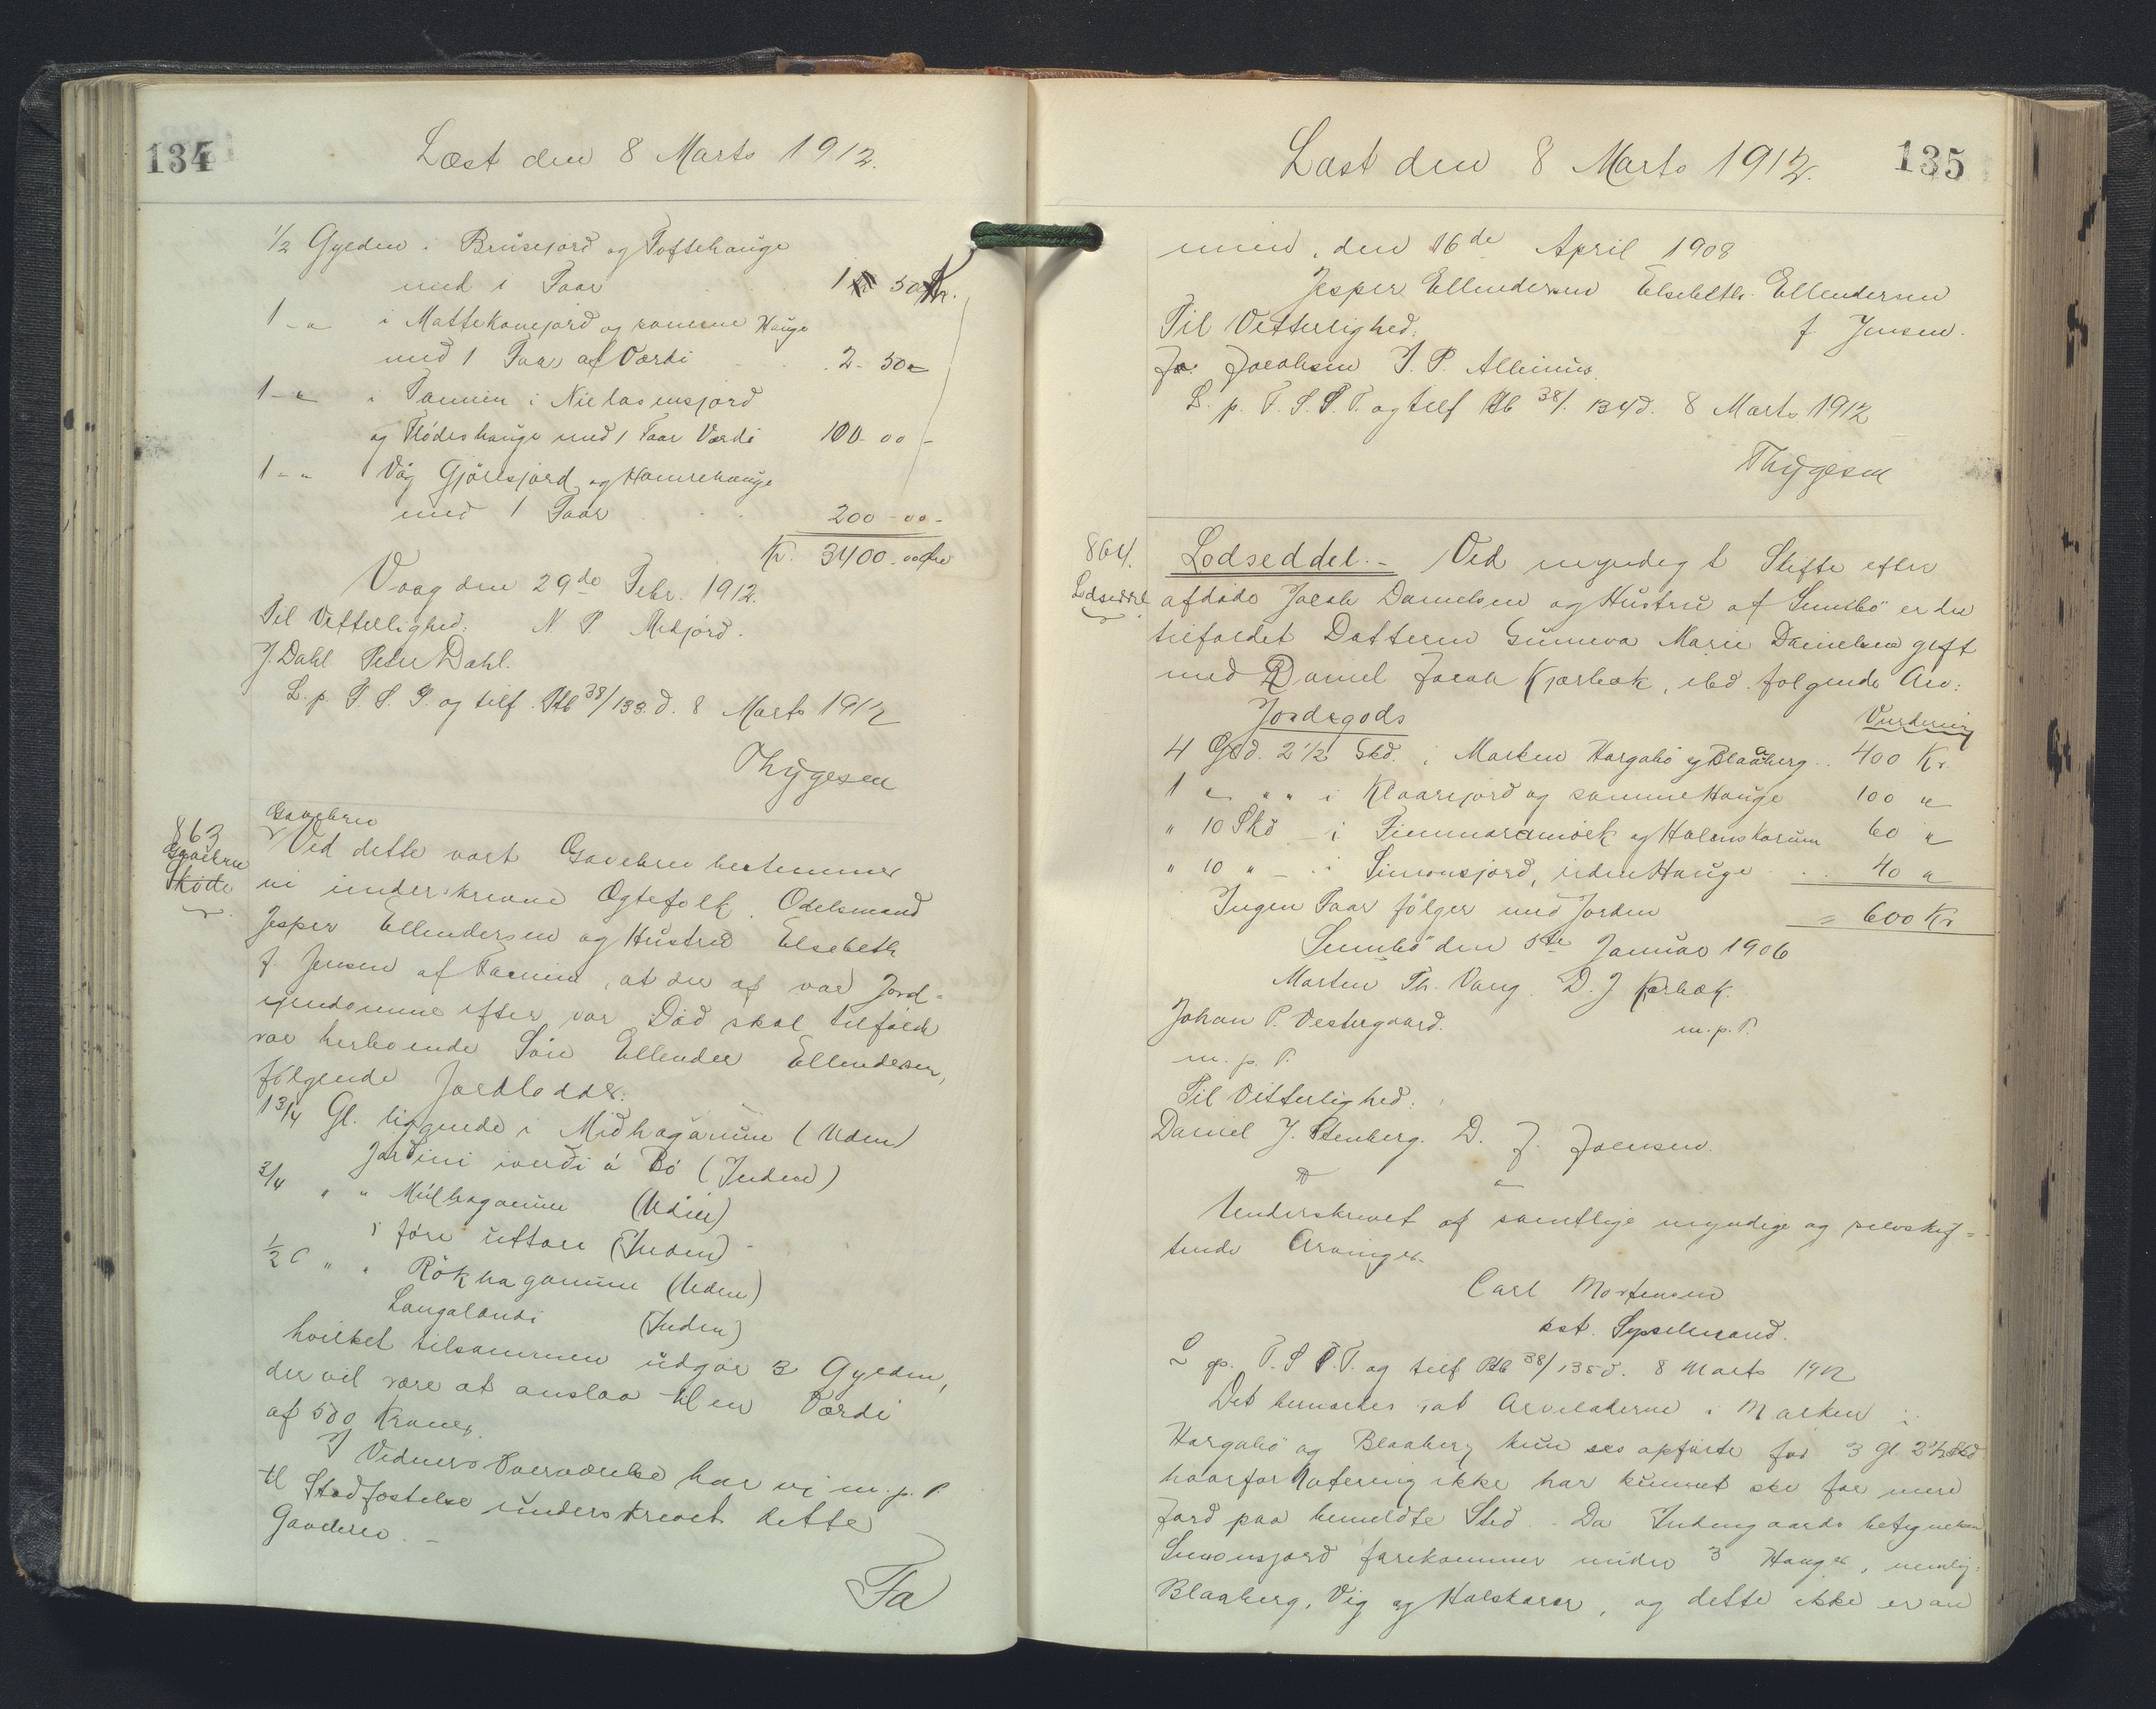 134
Læst den 8 Marts 1912.
1/2 Gylden i Brusejord og Toftehauge
med 1 Faar 50 Kr.
1 - " i Mattekonejord og samme Hauge
med 1 Faar af Værdi 2 - 50 "
1 - " i Famien i Nielasensjord
og Flödeshauge med 1 Faar Værdi 100 - 00 -
1 - " Våg Gjörlsjord og Hamrehauge
med 1 Faar 200 - 00 -
Kr. 3400 - 00 Øre
Vaag den 29de Febr. 1912.
Til Vitterlighed: N. P. Midjord.
J. Dahl Peter Dahl.
L. p. F. S. T. og tilf. Ptb 38/133. d. 8 Marts 1912
Thygesen
Gavebrev
863
Gavebrev
Skøde
Ved dette vort Gavebrev bestemmer
vi underskrevne Ægtefolk, Odelsmand
Jesper Ellendersen og Hustru Elsebeth
f. Jensen af Famien, at der af vor Jord-
ejendomme efter vor Död skal tilfalde
vor herboende Sön Ellender Ellendersen,
følgende Jordlodder:
1 3/4 Gl. liggende i Miðhaganum (Uden)
Jarðini innði á Bó (Inden)
3/4 " " Miðhaganum (Uden)
i före uttare (Inden)
1/2 " " Rökhaganum (Uden)
Langalandi (Inden)
hvilket tilsammen udgör 3 Gylden,
der vil være at anslaa til en Værdi
af 500 Kroner.
I Vidners Overværelse har vi m. p. P.
til Stadfæstelse underskrevet dette
Gavebrev. -
Fa
Læst den 8 Marts 1912.
135
mien, den 16de April 1908
Jesper Ellendersen Elsebeth Ellendersen
Til Vitterlighed: f. Jensen.
Jo. Jacobsen J. P. Albinus.
L. p. F. S. P. T. og tilf Ptb 38/134 d. 8 Marts 1912
Thygesen
864.
Lodseddel
Lodseddel. - Ved myndigt Skifte efter
afdöde Jacob Danielsen og Hustru af Sumbö er der
tilfaldet Datteren Sunneva Marie Danielsen gift
med Daniel Jacob Kjærbæk, ibd. følgende Arv:
Jordegods Vurdering
4 Gld. 2 1/2 Skd. i Marken Hargabö og Blaaberg .. 400 Kr.
1 " " " i Klaarejord og samme Hauge 100 "
" 10 Skd - i Simmaramörk og Halenskorum 60 "
" 10 " - " Simonsjord, uden Hauge .. 40 "
Ingen Faar fölger med Jorden = 600 Kr
Sumbö den 5te Januar 1906
Morten Th. Vang. D. J Kærbæk.
Johan P. Vestergaard. m. p. P.
m. p. P.
Til Vitterlighed:
Daniel J. Stenberg. D. J. Joensen.
Underskrevet af samtlige myndige og selvskif-
tende Arvinger.
Carl Mortensen
kst. Sysselmand.
L p. F. S P. T. og tilf Ptb 38/135 d. 8 Marts 1912
Det bemærkes, at Arveladerne i Marken i
Hargabö og Blaaberg kun ses opførte for 3 Gl. 2 1/2 Skd
hvorfor Notering ikke har kunnet ske for mere
Jord paa bemeldte Sted. Da Indengaards betegnelsen
Simonsjord forekommer under 3 Hauger, nemlig:
Blaaberg, Vig og Halskorar, og dette ikke er an